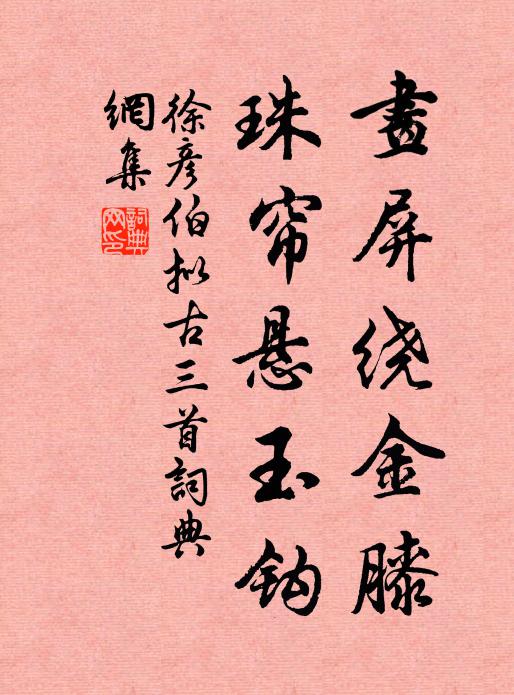 畫屏绕金膝
珠帘悬玉钩
徐彦伯拟古三首詞典
網集
詞典网印